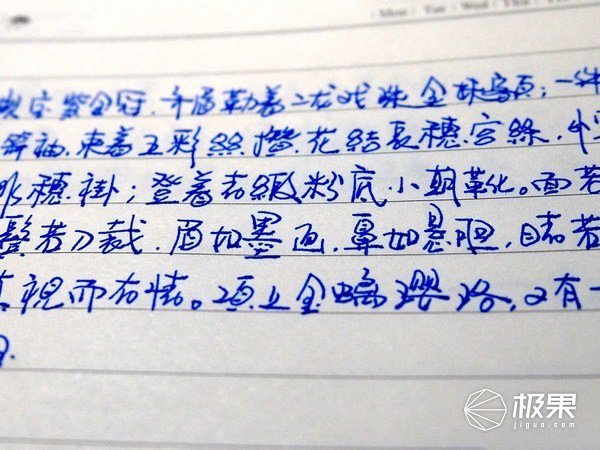 Mon Tue Wed Thu
嵌宝紫金冠，齐眉勒着二龙戏珠金抹额；一件
箭袖，束着五彩絲攢花結長穗宫絛，
穗褂；登着青緞粉底小朝靴。面若
鬓若刀裁，眉如墨画，鼻如悬胆，睛若
視而有情。項上金螭瓔珞，又有一
极果
jiguo.com